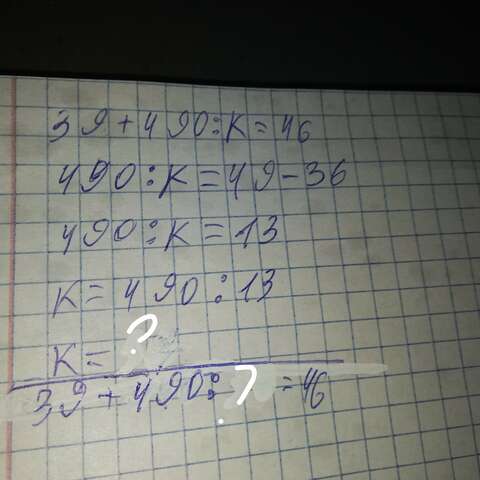 39+490:K=46
490:K=49-36
490:K=13
K=490:13
K= ?
39+490:? =46